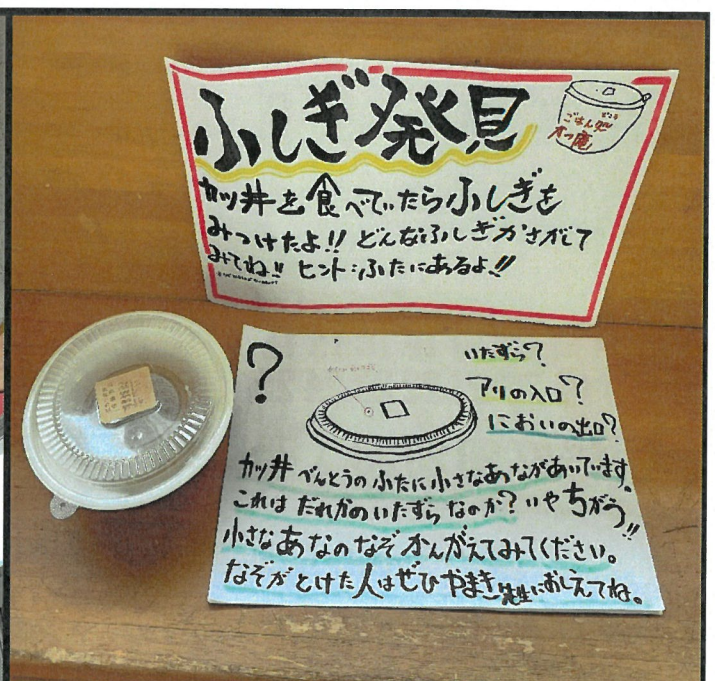 ふしぎ発見
カツ丼を食べていたらふしぎを
みつけたよ!! どんなふしぎかさがして
みてね!! ヒント:ふたにあるよ!!
ごはん
?
いたずら?
アリの入口?
においの出口?
カツ丼べんとうのふたに小さなあながあいています。
これはだれかのいたずらなのか?いやちがう!!
小さなあなのなぞかんがえてみてください。
なぞがとけた人はぜひやまき先生におしえてね。